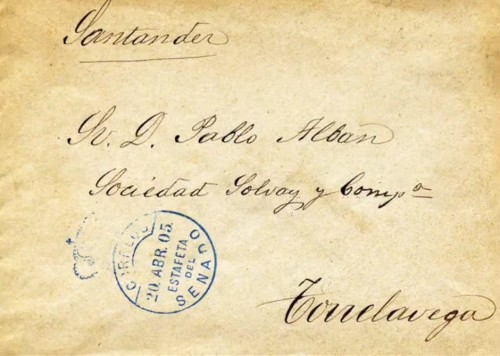 Santander
Sr. D. Pablo Alban
Sociedad Solvay y Compª
CORREOS
20. ABR. 05.
ESTAFETA
DEL
SENADO
Torrelavega